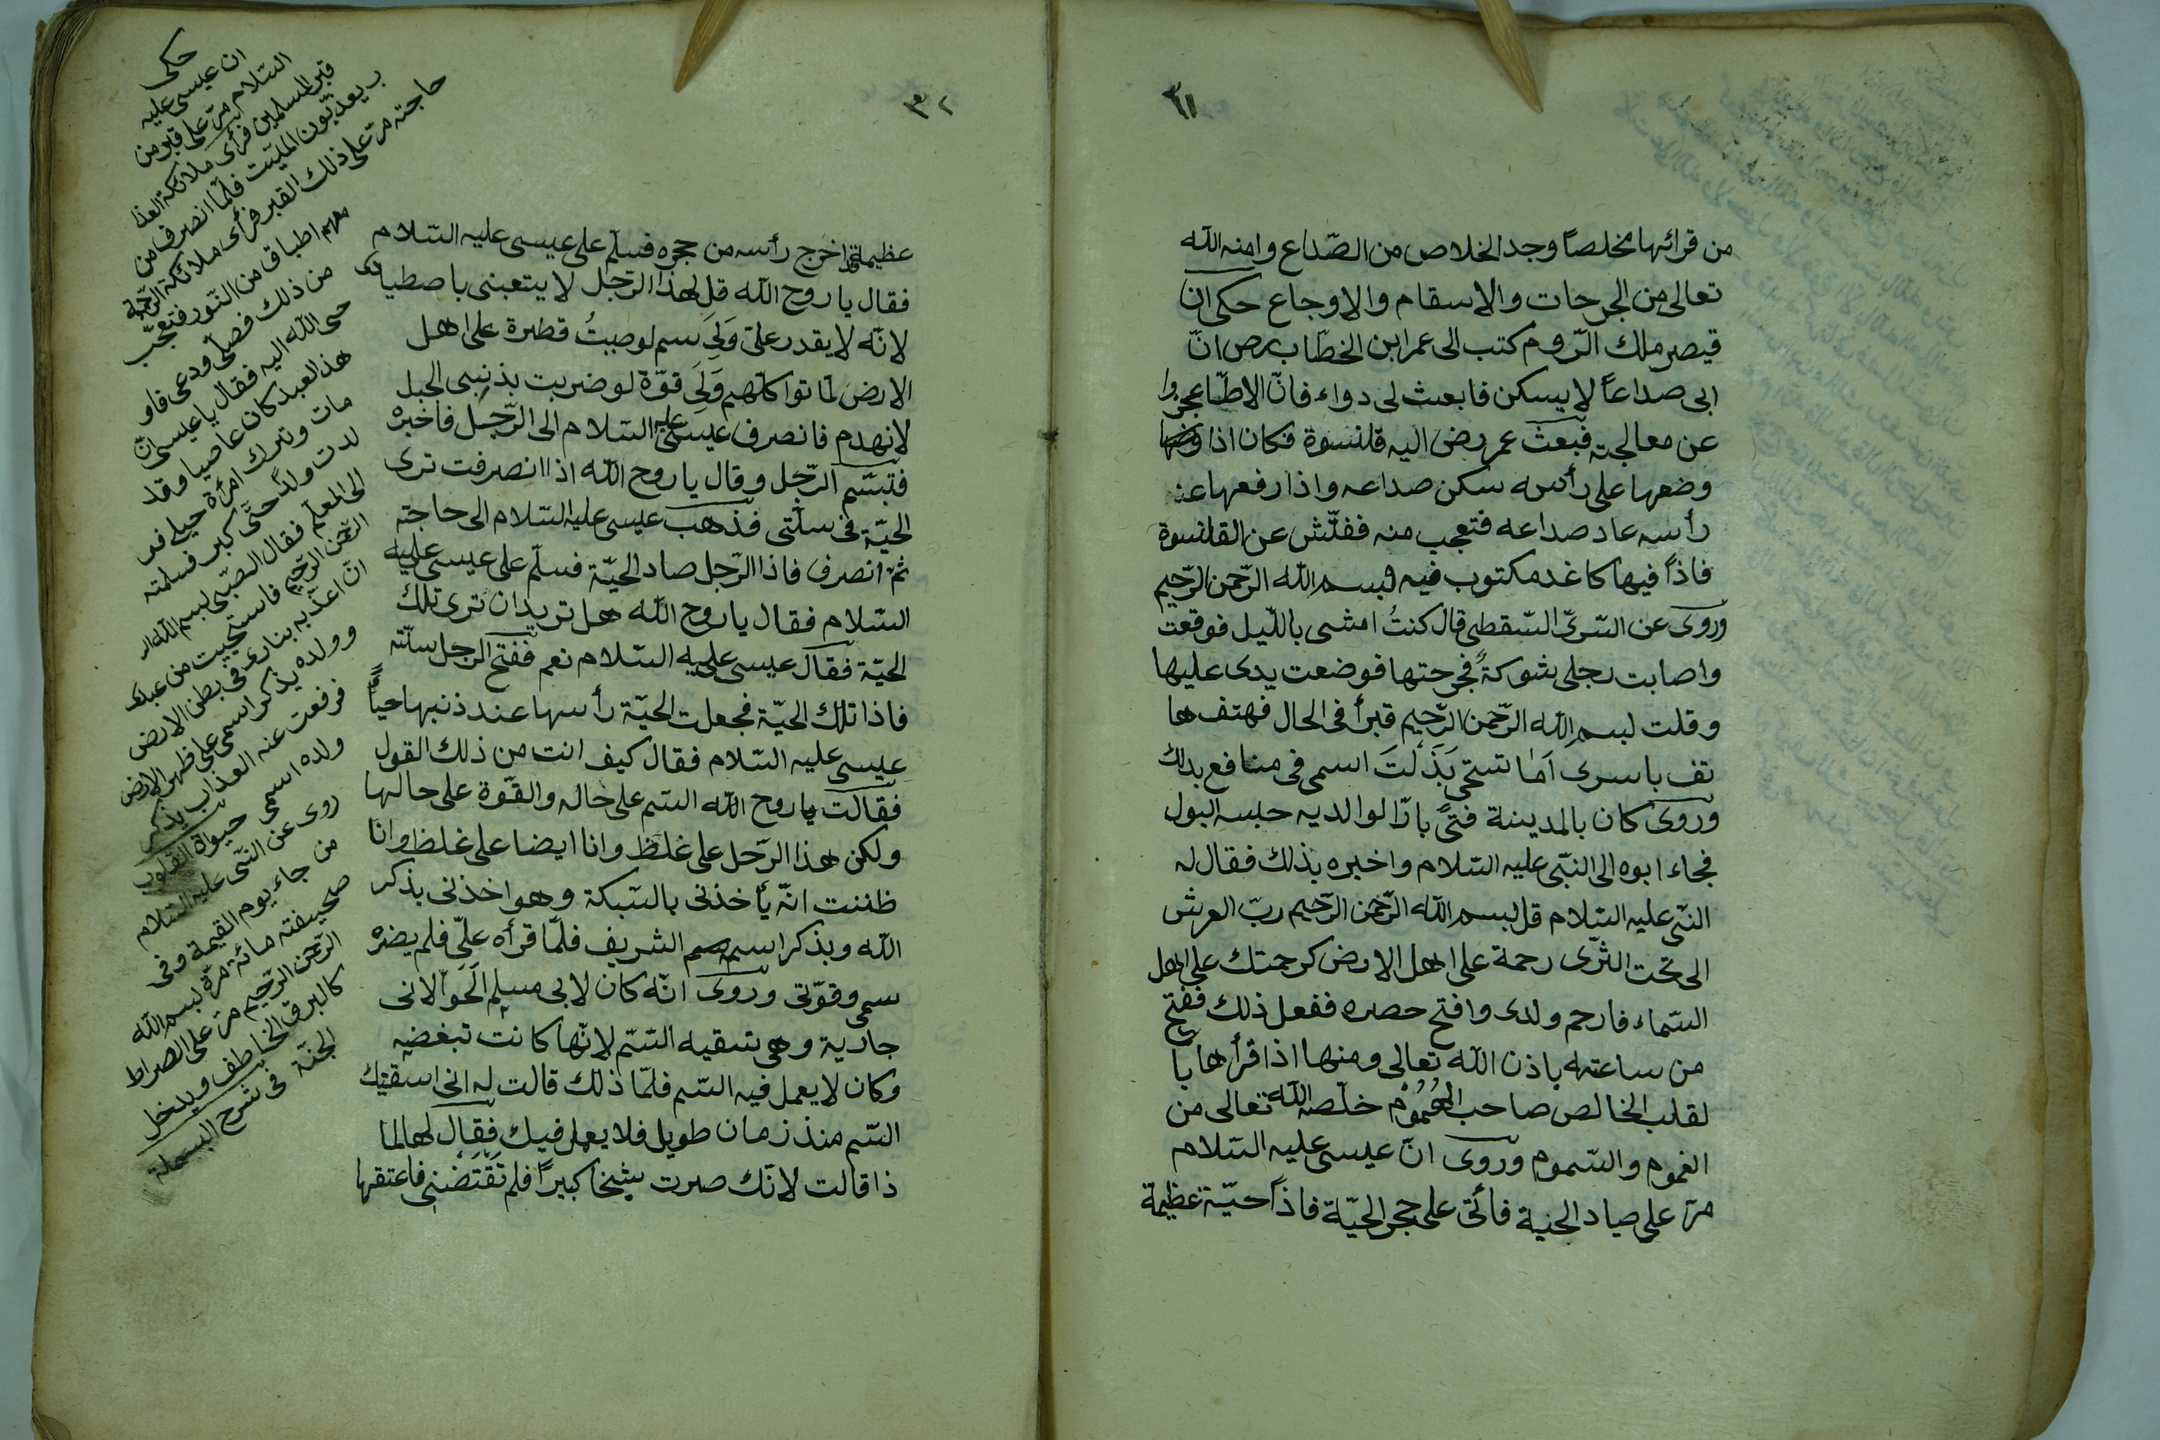 ٣١
من قرائها مخلصا وجد الخلاص من الصّداع وامنه الله
تعالى من الجرحات والاسقام والاوجاع حكى ان
قيصر ملك الرّوم كتب الى عمر ابن الخطّاب رض انّ
ابى صداعاً لا يسكن فابعث لى دواء فانّ الاطّبا عجزوا
عن معالجته فبعث عمر رض اليه قلنسوة فكان اذا
وضعها على رأسه سكن صداعه واذا رفعها عن
رأسه عاد صداعه فتعجب منه ففتّش عن القلنسوة
فاذاً فيها كاغد مكتوب فيه بسم الله الرّحمن الرّحيم
وروى عن السّرىّ السّقطى قال كنتُ امشى باللّيل فوقعت
واصابت رجلى شوكةٌ فجرحتها فوضعت يدى عليها
وقلت بسم الله الرّحمن الرّحيم فبرأ فى الحال فهتف ها
تف ياسرى اَمَا تستحى بَذَلْتَ اسمى فى منافع بدنك
وروى كان بالمدينة فتىً بارّا لوالديه حبسه البول
فجاء ابوه الى النّبى عليه السّلام واخبره بذلك فقال له
النّبى عليه السّلام قل بسم الله الرّحمن الرّحيم ربّ العرش
الى تحت الثّرى رحمة على اهل الارض كرحمتك على اهل
السّماء فارحم ولدى وافتح حصره ففعل ذلك ففتح
من ساعته باذن الله تعالى ومنها اذا قرأها با
لقلب الخالص صاحب الهُمُوُم خلّصه الله تعالى من
الغموم والسّموم وروى انّ عيسى عليه السّلام
مرّ على صياد الحية فأتى على حجر الحيّة فاذاً حيّة عظيمة
٣٢
عظيمة اخرج رأسه من حجره فسلّم على عيسى عليه السّلام
فقال يا روح الله قل لهذا الرّجل لا يتعبنى باصطيادى
لانّه لا يقدر علىّ وَلِىَ سم لو صببتُ قطرة على اهل
الارض لماتوا كلّهم وَلِىَ قوّة لو ضربت بذنبى الجبل
لانهدم فانصرف عيسى عليه السّلام الى الرّجل فاخبره
فتبسّم الرّجل وقال يا روح الله اذا انصرفت ترى
الحيّة فى سلّتى فذهب عيسى عليه السّلام الى حاجته
ثمّ انصرف فاذا الرّجل صاد الحيّة فسلّم على عيسى عليه
السّلام فقال يا روح الله هل تريد ان ترى تلك
الحيّة فقال عيسى عليه السّلام نعم ففتح الرجل سلّته
فاذا تلك الحيّة فجعلت الحيّة رأسها عند ذنبها حياًّ
عيسى عليه السّلام فقال كيف انت من ذلك القول
فقالت يا روح الله السّم على حاله والقوّة على حالها
ولكن هذا الرّجل على غلظ وانا ايضا على غلظ وانا
ظننت انّه يأخذنى بالشبكة وهو اخذنى بذكر
الله وبذكر اسم الشريف فلمّا قرأه علىّ فلم يضرّه
سمى وقوّتى وروى انّه كان لابى مسلم الخَوْلانى
جارية وهى تسقيه السّم لانّها كانت تبغضه
وكان لا يعمل فيه السّم فلمّا ذلك قالت له انى اسقيتك
السّم منذ زمان طويل فلا يعمل فيك فقال لها لما
ذا قالت لانّك صرت شيخا كبيراً فلم فاعتقها
حكى
ان عيسى عليه
السّلام مرّ على قبر من
قبر المسلمين فرأى ملائكة العذا
ب يعذبون الميّت فلمّا انصرف من
حاجته مرّ على ذلك القبر فرأى ملائكة الرّحمة
معهم اطباق من النّور فتعجّب
من ذلك فصلّى ودعى فاو
حى الله اليه فقال يا عيسى انّ
هذا العبد كان عاصيا وقد
مات وترك امرأة حبلى فو
لدت ولداً حتّى كبر فسلمته
الى المعلّم فقال الصّبى بسم الله الر
الرّحمن الرّحيم فاستحييت من عبدى
انّ اعذّبه بنارى فى بطن الارض
وولده يذكر اسمى على ظهر الارض
فرفعت عنه العذاب بذكر
ولده اسمى حيوة القلوب
روى عن النّبى عليه السّلام
من جاء يوم القيمة وفى
صحيفته مائة مرّة بسم الله
الرّحمن الرّحيم مرّ على الصراط
كالبرق الخاطف ويدخل
الجنّة فى شرح البسملة